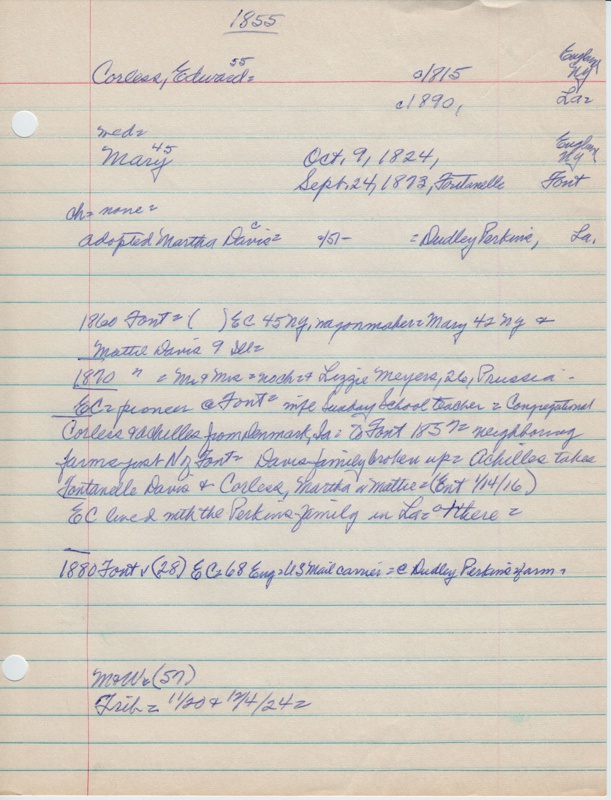 1855
Corless, Edward 55 = c/1815 England NY
c1890, La=
wed=
Mary 45 Oct, 9, 1824, England NY
Sept. 24, 1873, Fontanelle Font
ch= none=
adopted Martha Davis c = /51- = Dudley Perkins, La.
1860 Font= ( ) EC 45 NY, wagonmaker= Mary 42 NY &
Mattie Davis 9 Ill=
1870 " = Mr & Mrs = no ch= + Lizzie Meyers, 26, Prussia -
EC= pioneer @ Font= wife Sunday School teacher = Congregational
Corless & Achilles from Denmark, Ia= to Font 1857= neighboring
farms just N of Font= Davis family broken up= Achilles takes
Fontanelle Davis & Corless, Martha or Mattie= (Ent 1/14/16)
EC lived with the Perkins family in La= + there =
1880 Font v (28) EC= 68 Eng= US Mail carrier = @ Dudley Perkins farm.
M&W= (57)
Trib= 11/20 & 12/4/24=